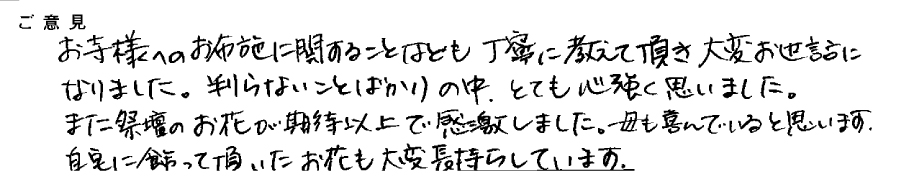 ご意見
お寺様へのお布施に関することなども丁寧に教えて頂き大変お世話に
なりました。判らないことばかりの中、とても心強く思いました。
また祭壇のお花が期待以上で感激しました。母も喜んでいると思います。
自宅に飾って頂いたお花も大変長持ちしています。